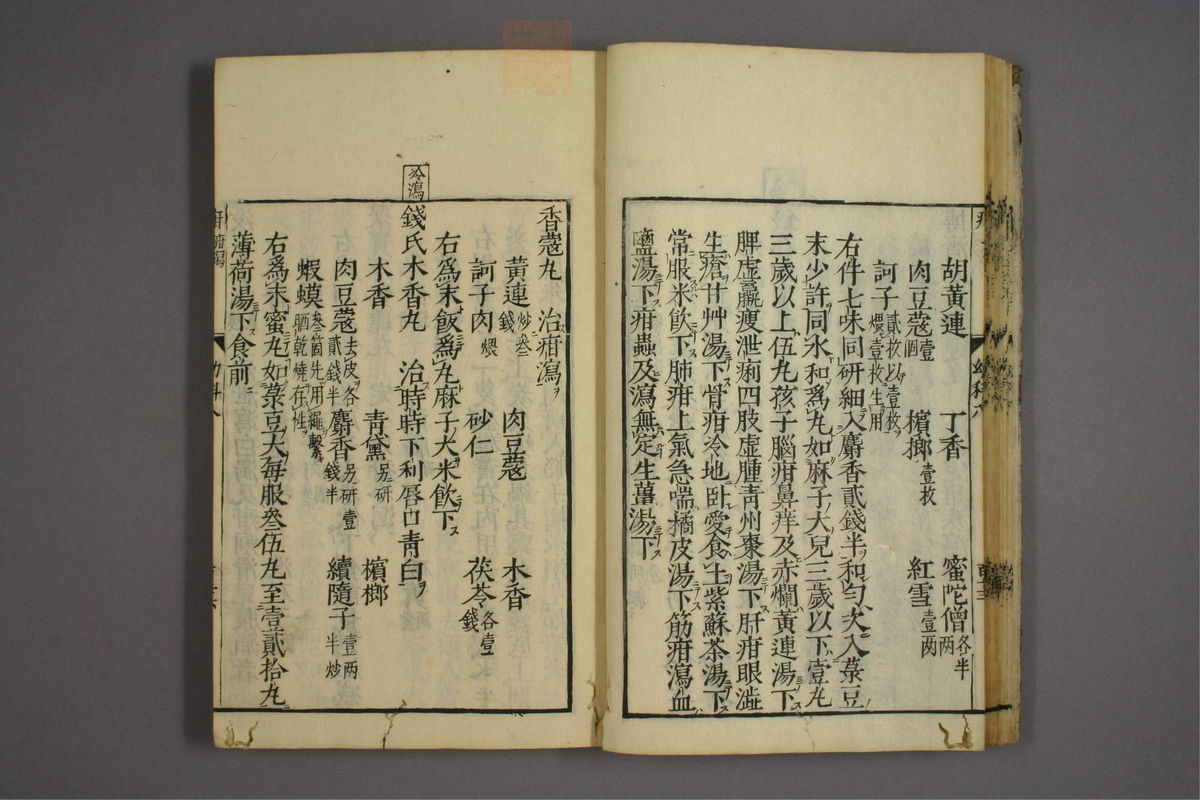 胡黃連　丁香　蜜陀僧各半両
肉豆蔻壹個　檳榔壹枚　紅雪壹両
訶子貳枚以壹枚煨壹枚生用
右件七味同研細入麝香貳錢半和勻次入菉豆
末少許同水和爲丸如麻子大兒三歲以下壹丸
三歲以上伍丸孩子腦疳鼻痒及赤爛黃連湯下
脾虛羸瘦泄痢四肢虛腫青州棗湯下肝疳眼澁
生瘡甘艸湯下骨疳冷地臥愛食土紫蘇茶湯下
常服米飲下肺疳上氣急喘橘皮湯下筋疳瀉血
鹽湯下疳蟲及瀉無定生薑湯下
香蔻丸　治疳瀉
黃連炒叁錢　肉豆蔻　木香
訶子肉煨　砂仁　茯苓各壹錢
右爲末飯爲丸麻子大米飲下
冷瀉
錢氏木香丸　治時時下利唇口青白
木香　青黛另研　檳榔
肉豆蔻去皮各貳錢半　麝香另研壹錢半　續隨子壹両半炒
蝦蟆叁箇先用繩繫晒乾燒存性
右爲末蜜丸如菉豆大每服叁伍丸至壹貳拾丸
薄荷湯下食前